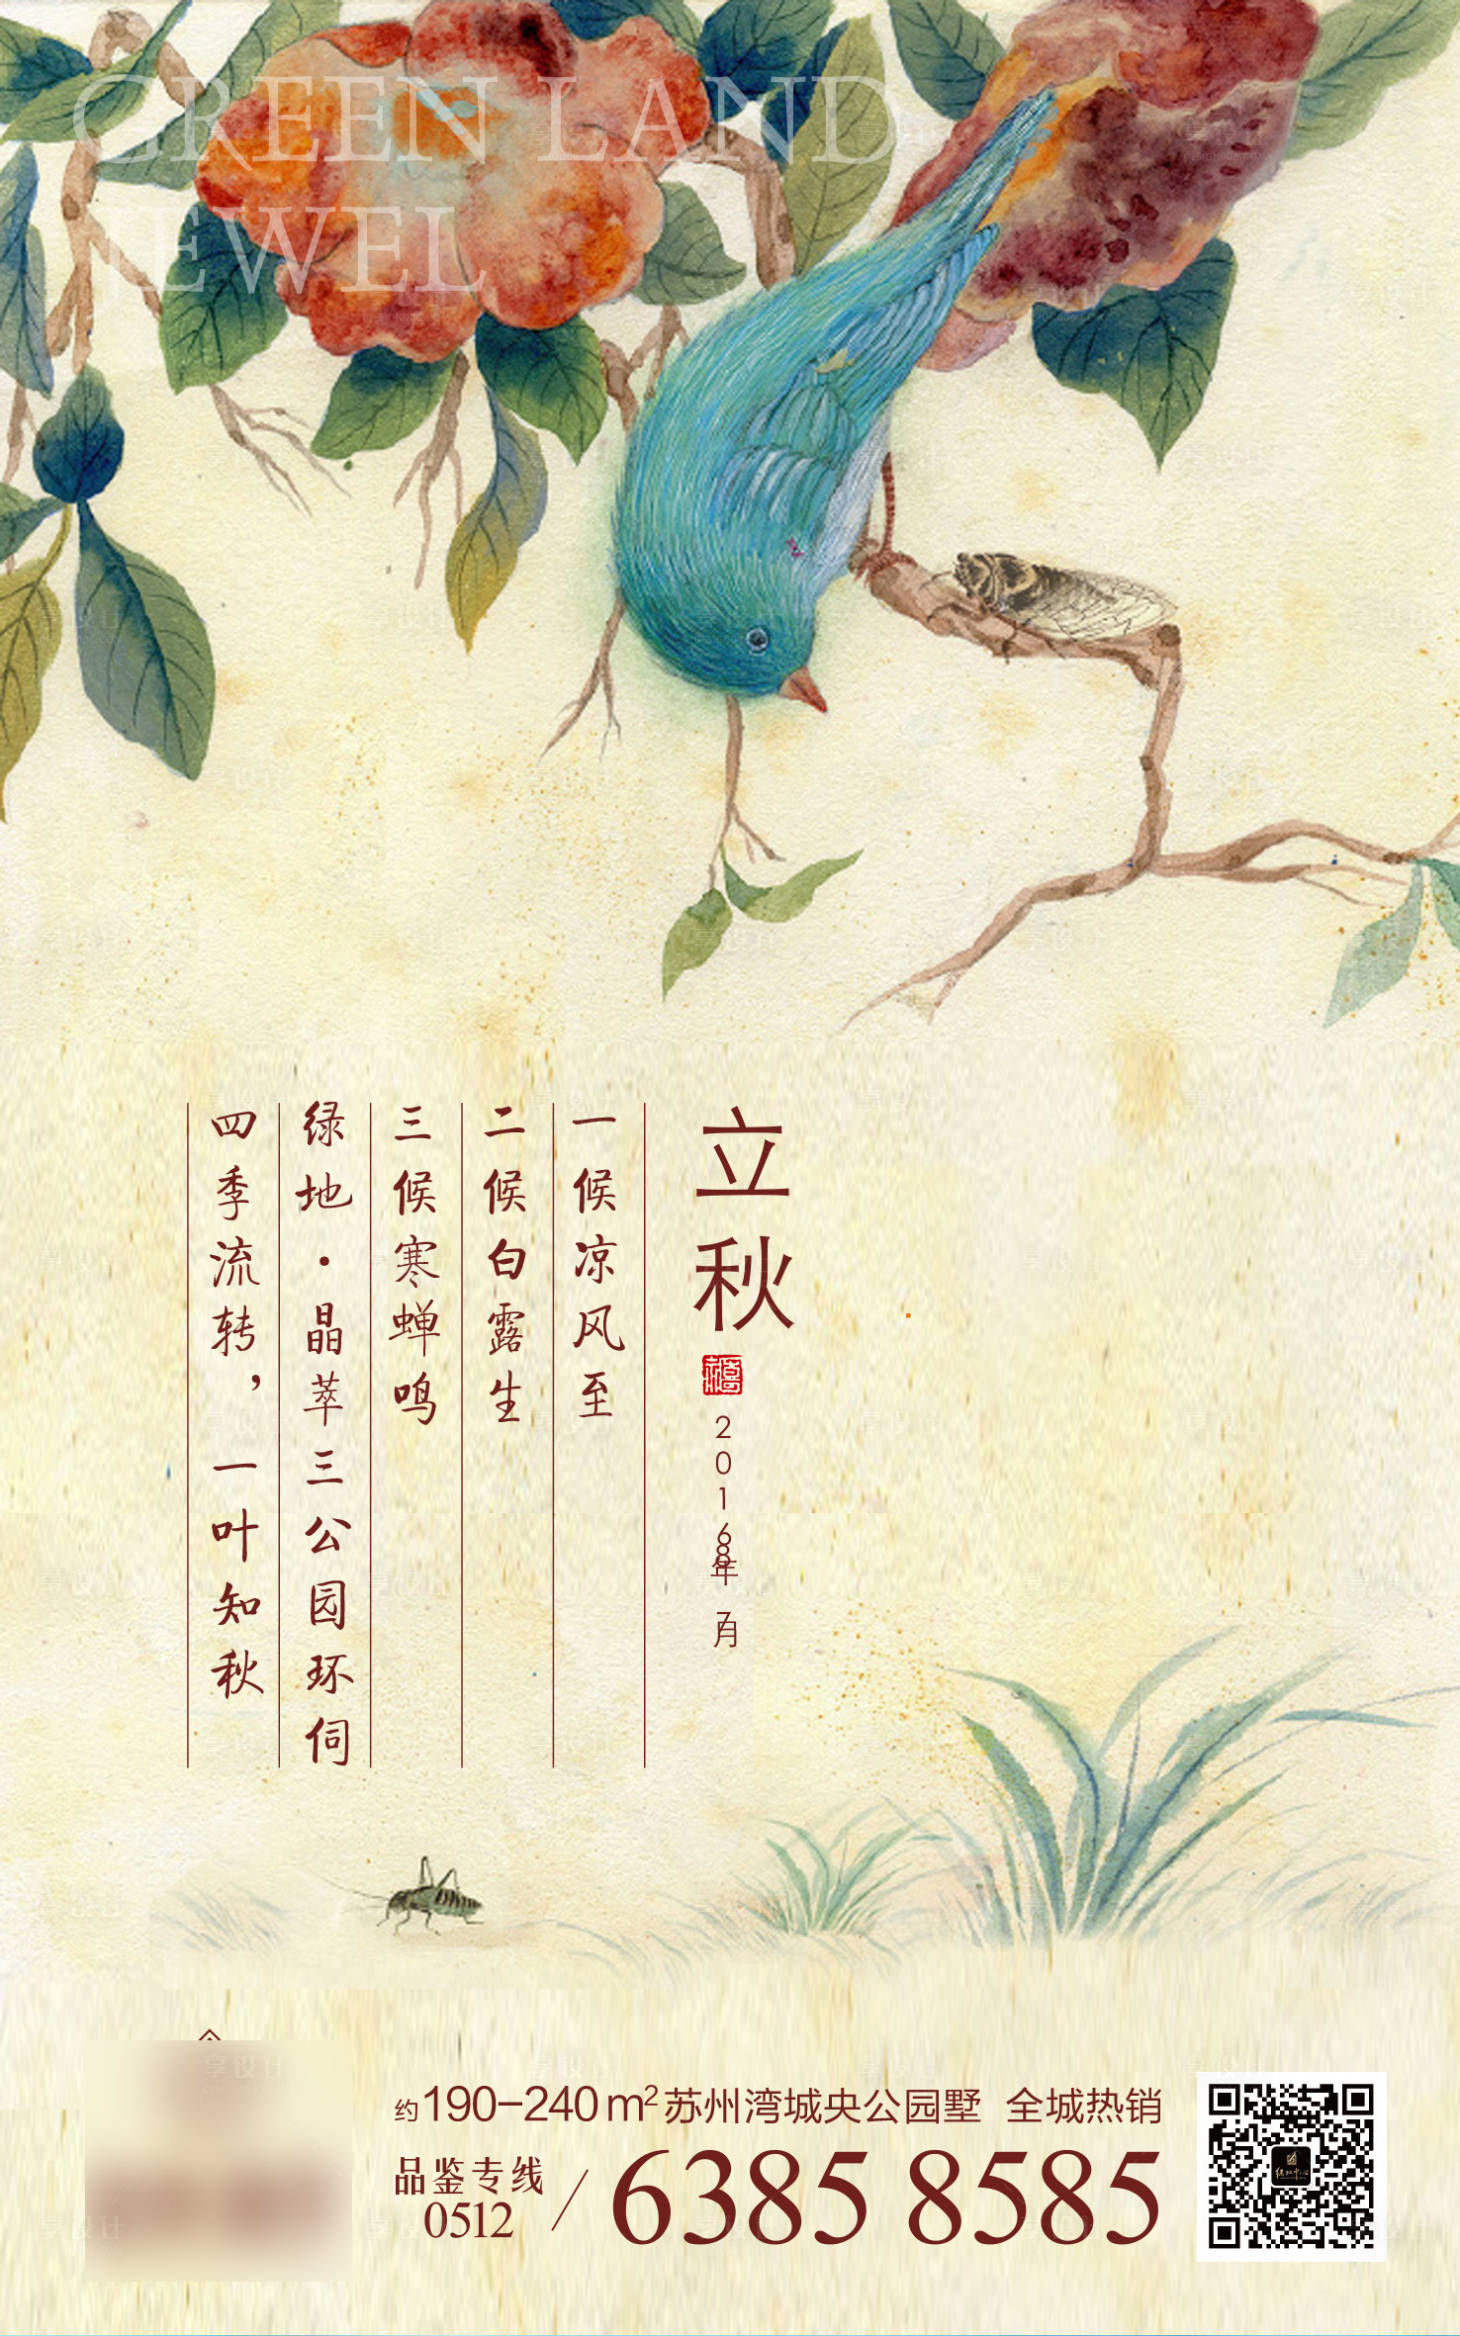 GREEN LAND
JEWEL
立秋
2016年
8月
一候凉风至
二候白露生
三候寒蝉鸣
绿地·晶萃三公园环伺
四季流转，一叶知秋
约190-240m²苏州湾城央公园墅 全城热销
品鉴专线
0512
/ 6385 8585